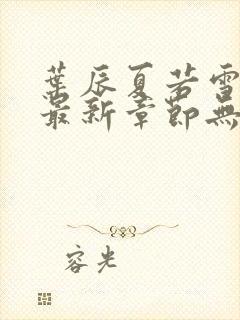 葉辰夏若雪
最新章節無
容光